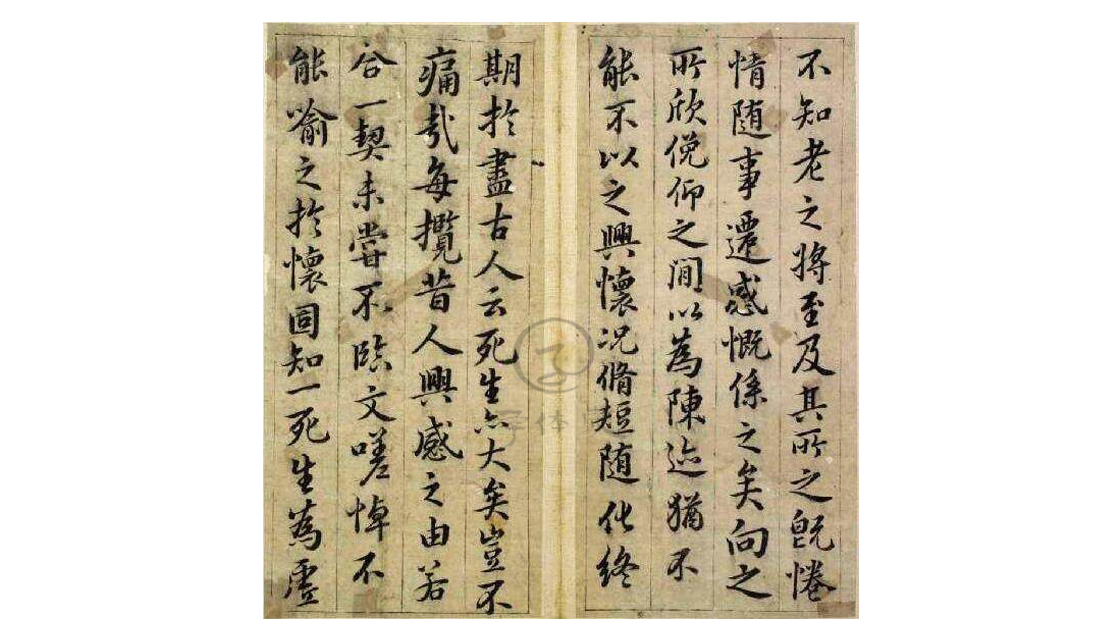 不知老之將至及其所之既惓
情随事遷感慨係之矣向之
所欣俛仰之間以為陳迹猶不
能不以之興懷况脩短随化終
期於盡古人云死生亦大矣豈不
痛哉每攬昔人興感之由若
合一契未嘗不臨文嗟悼不
能喻之於懷固知一死生為虛
字体